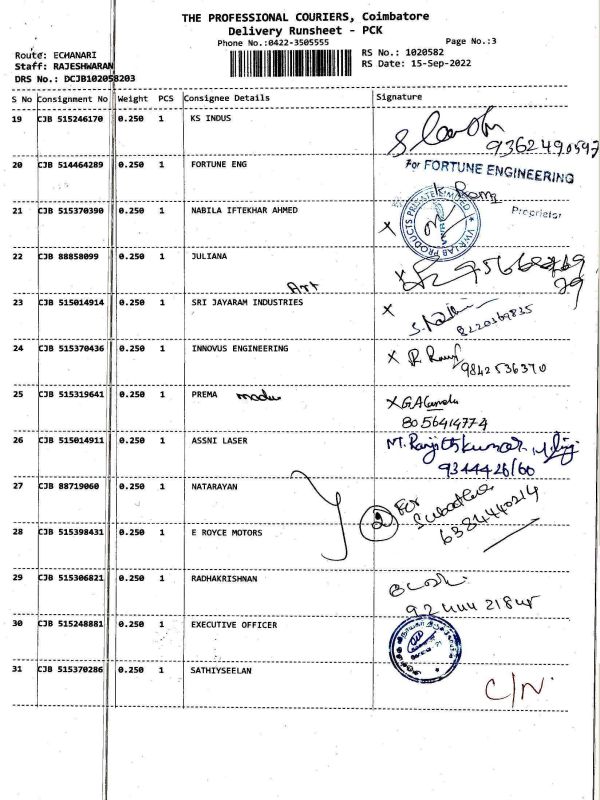 THE PROFESSIONAL COURIERS, Coimbatore
Delivery Runsheet - PCK
Phone No.:0422-3505555
Page No.:3
Route: ECHANARI
RS No.: 1020582
Staff: RAJESHWARAN
RS Date: 15-Sep-2022
DRS No.: DCJB102058203
S No Consignment No Weight PCS Consignee Details Signature
19 CJB 515246170 0.250 1 KS INDUS
9362490597
20 CJB 514464289 0.250 1 FORTUNE ENG
For FORTUNE ENGINEERING
Proprietor
21 CJB 515370390 0.250 1 NABILA IFTEKHAR AHMED
22 CJB 88858099 0.250 1 JULIANA
23 CJB 515014914 0.250 1 SRI JAYARAM INDUSTRIES
8220369835
24 CJB 515370436 0.250 1 INNOVUS ENGINEERING
9842536370
25 CJB 515319641 0.250 1 PREMA
8056414774
26 CJB 515014911 0.250 1 ASSNI LASER
M. Ranjithkumar
9344426160
27 CJB 88719060 0.250 1 NATARAYAN
2 For
6384440214
28 CJB 515398431 0.250 1 E ROYCE MOTORS
29 CJB 515306821 0.250 1 RADHAKRISHNAN
30 CJB 515248881 0.250 1 EXECUTIVE OFFICER
31 CJB 515370286 0.250 1 SATHIYSEELAN
C/N